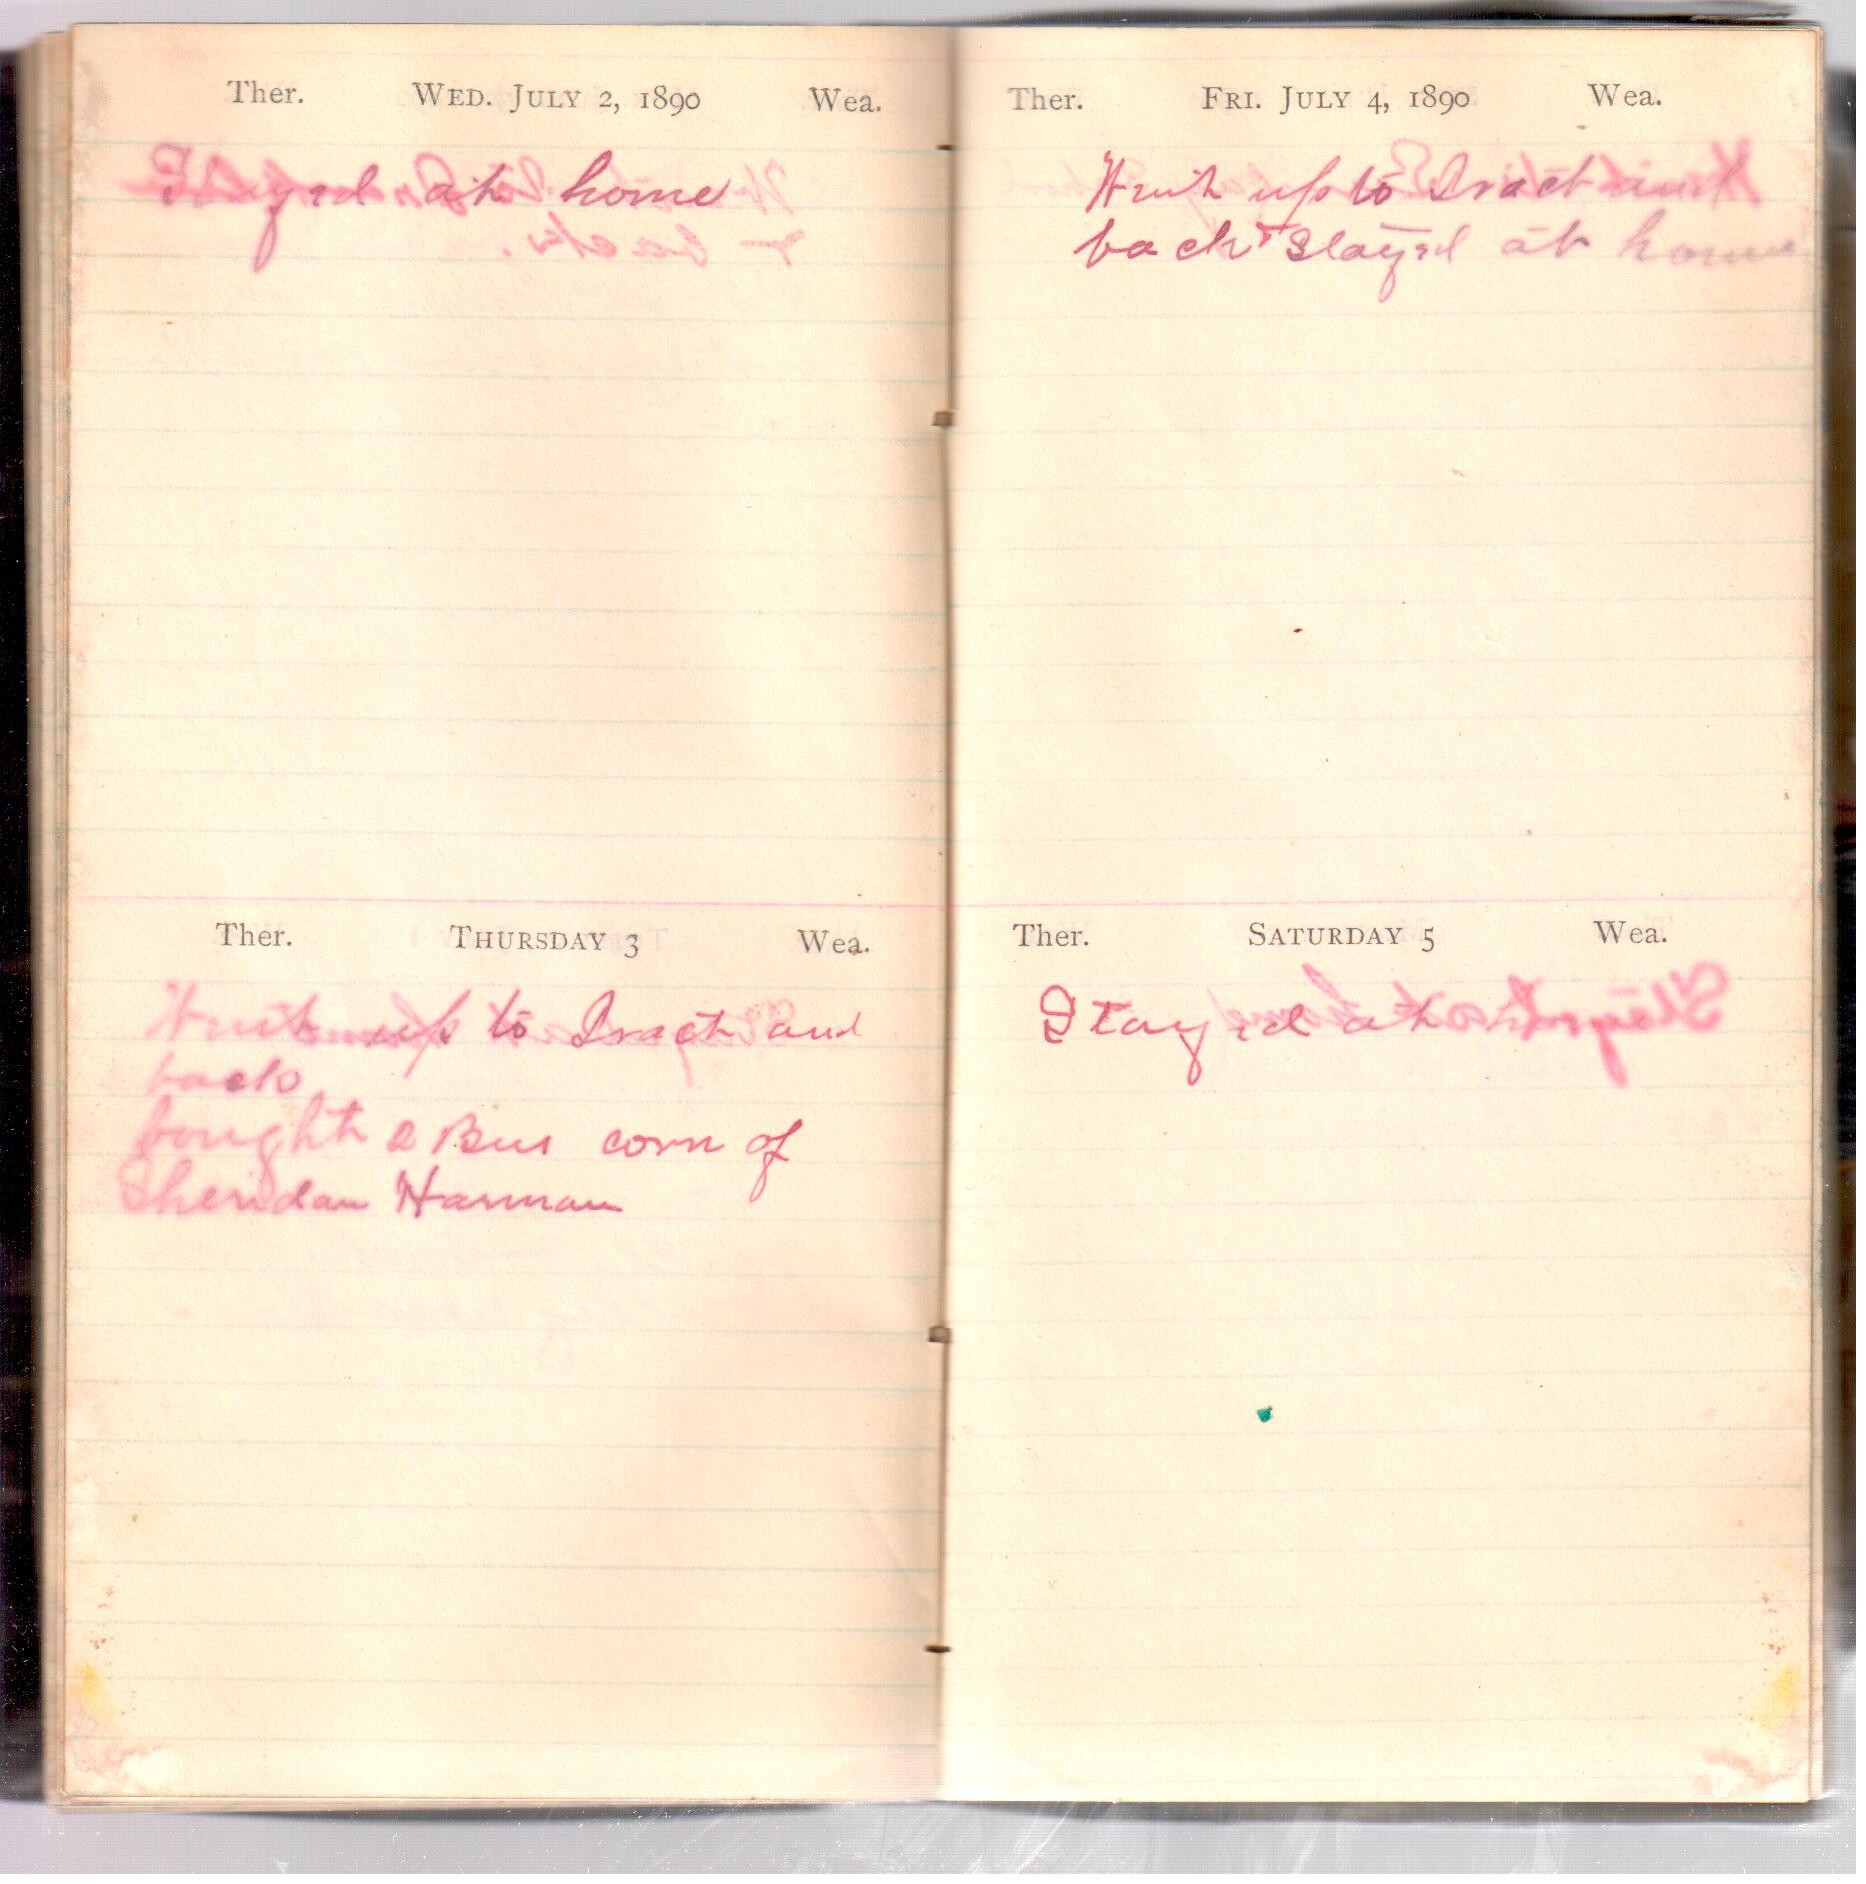 Ther. WED. JULY 2, 1890 Wea.
Stayed at home
Ther. THURSDAY 3 Wea.
Went up to Tract and
back
bought 2 Bus corn of
Sheridan Harman
Ther. FRI. JULY 4, 1890 Wea.
Went up to Tract and
back & Stayed at home
Ther. SATURDAY 5 Wea.
Stayed at home